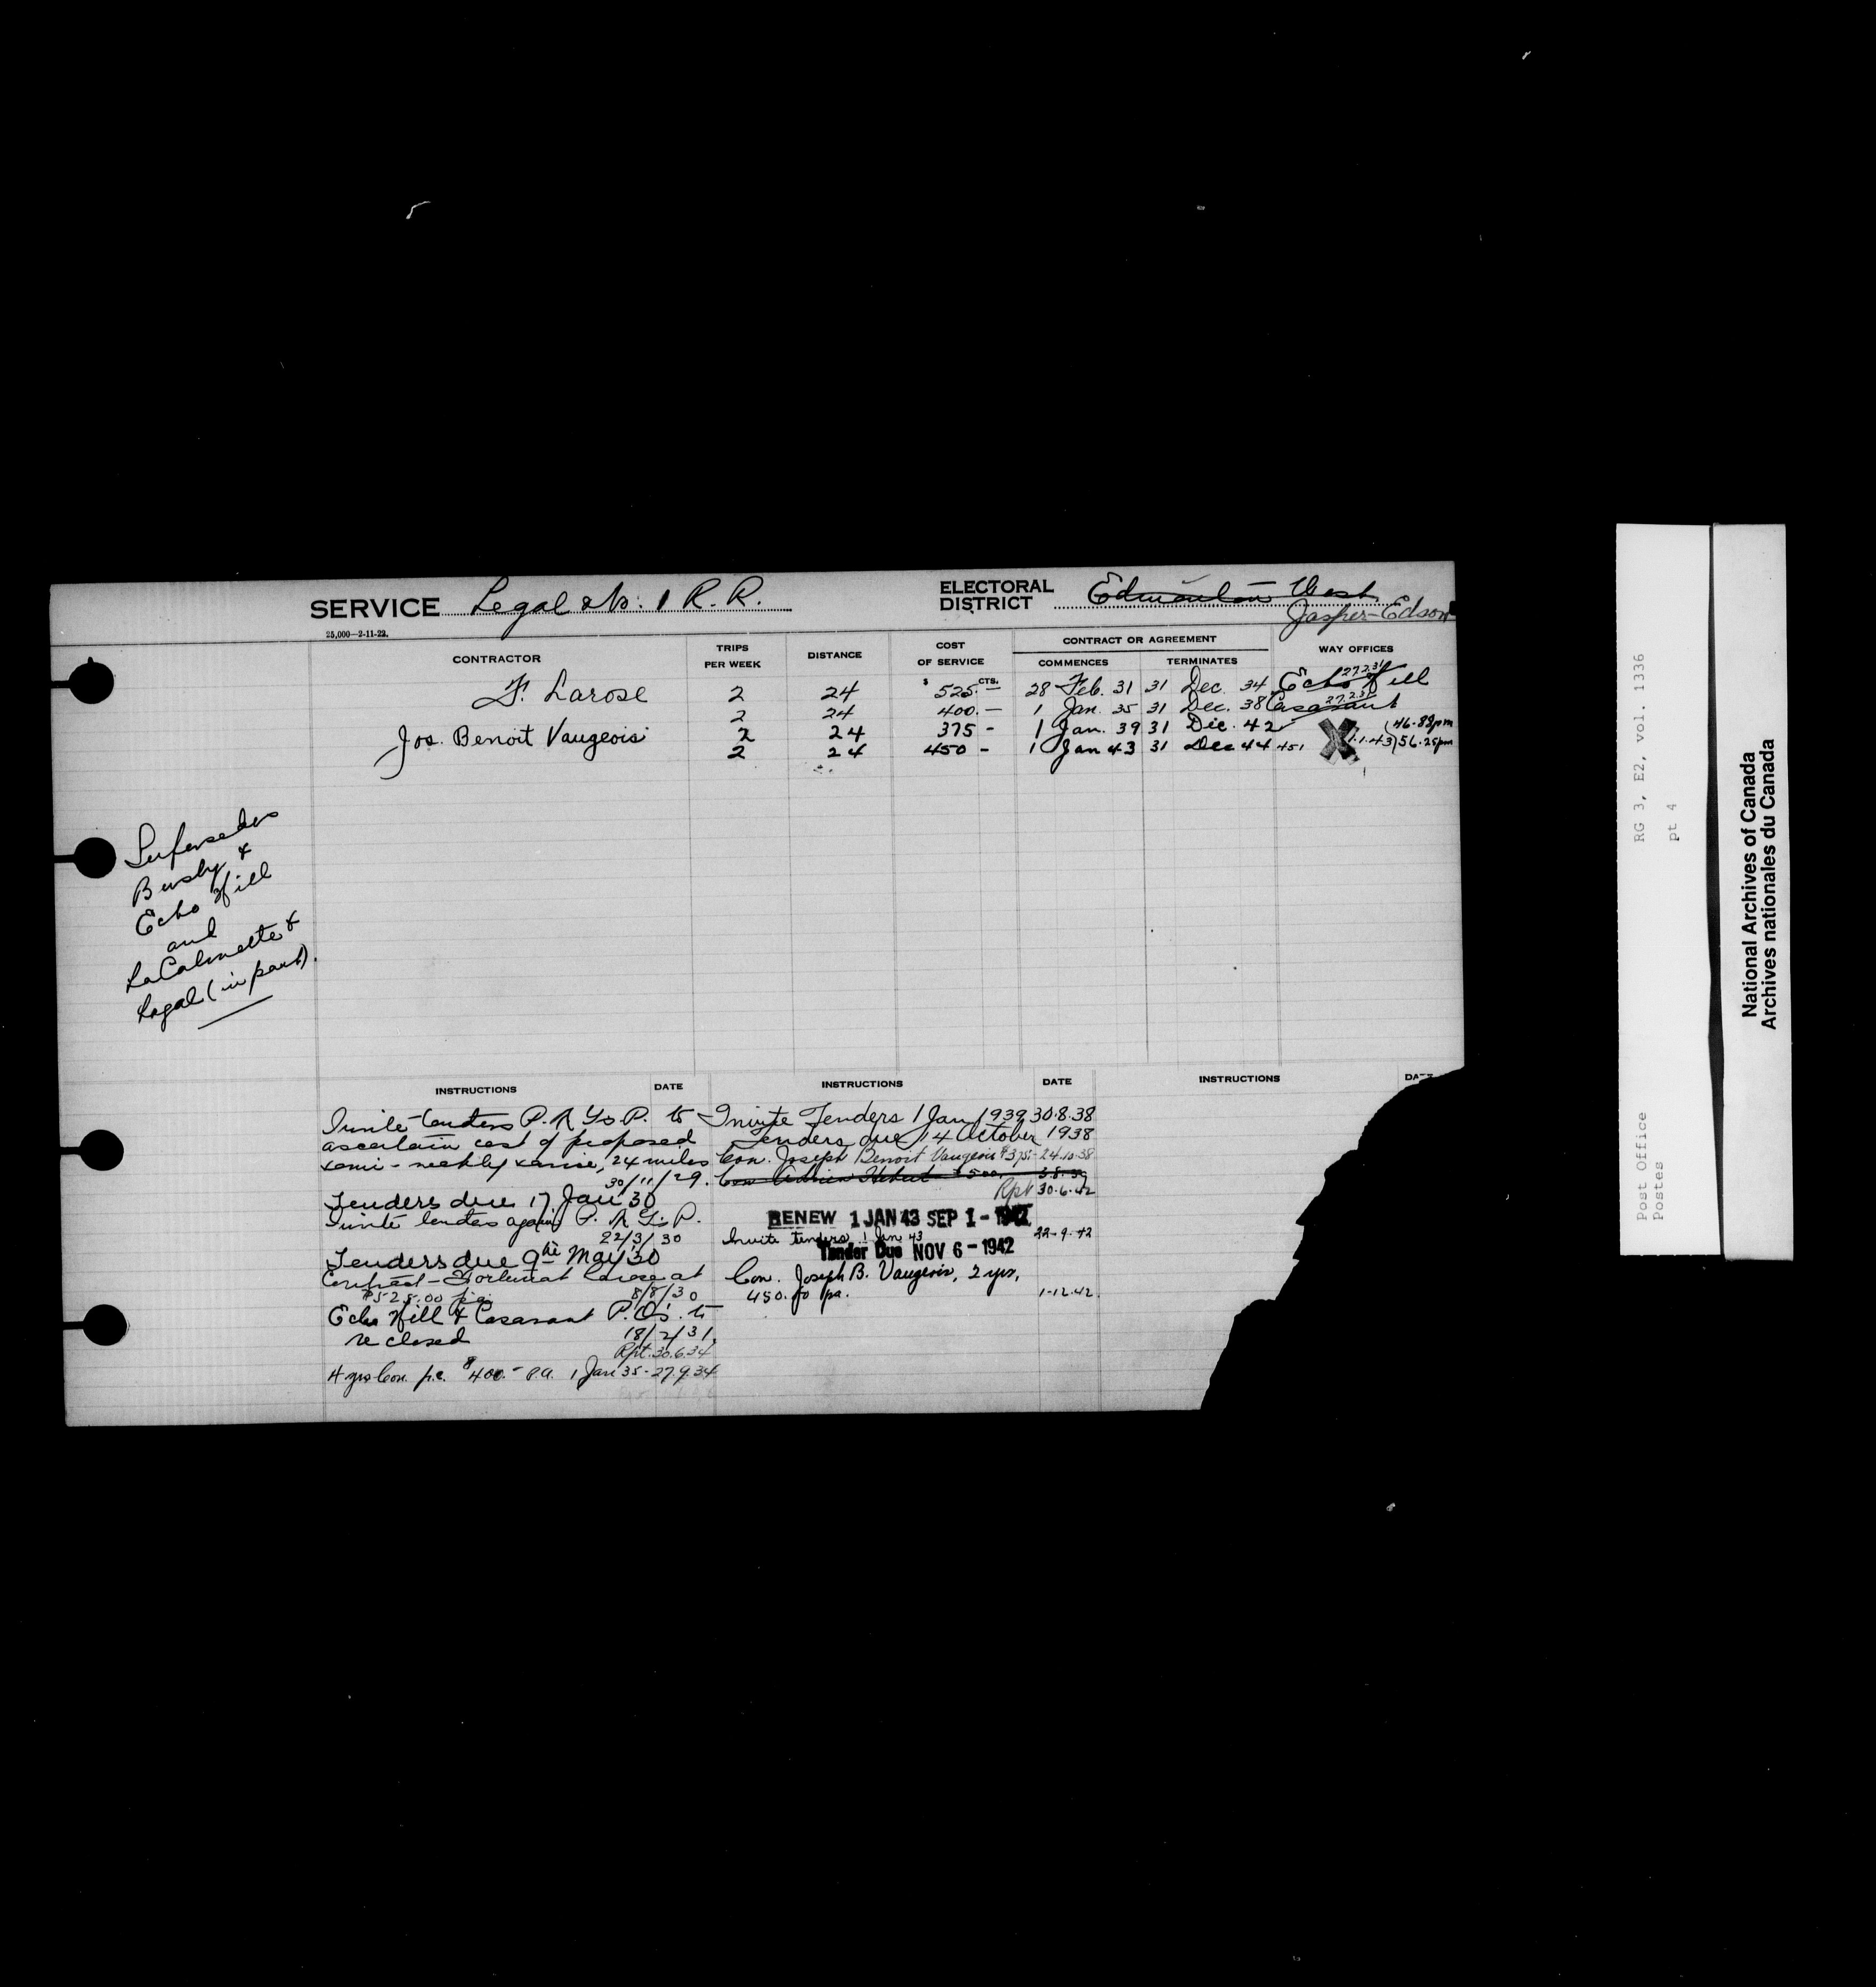 SERVICE Legal No. 1 R. R.
ELECTORAL DISTRICT Edmonton West
Jasper-Edson
25,000—2-11-22.
CONTRACTOR TRIPS PER WEEK DISTANCE COST OF SERVICE CONTRACT OR AGREEMENT COMMENCES TERMINATES WAY OFFICES
$ CTS.
F. Larose 2 24 525.— 28 Feb. 31 31 Dec. 34 Echo Hill 27.2.31
2 24 400.— 1 Jan. 35 31 Dec. 38 Casavant 27.2.31
Jos. Benoit Vaugeois 2 24 375 - 1 Jan. 39 31 Dec. 42 46.88pm
2 24 450 - 1 Jan 43 31 Dec 44 451 X 1.1.43 56.25pm
Supersedes
Busby &
Echo Hill
and
LaCalmette &
Legal (in part).
INSTRUCTIONS DATE INSTRUCTIONS DATE INSTRUCTIONS
Invite tenders P. to
ascertain cost of proposed
semi-weekly service, 24 miles
30/11/29.
Tenders due 17 Jan 30
Invite tenders again P.
22/3/30
Tenders due 9th May 30
Contract - Fortunat Larose at
$525.00 p.a. 8/8/30
Echo Hill & Casavant P.O's. to
be closed 18/2/31.
Rpt. 30.6.34
4 yrs Con. p.c. $400.- P.a. 1 Jan 35 - 27.9.34
Invite Tenders 1 Jan 1939 30.8.38
Tenders due 14 October 1938
Con. Joseph Benoit Vaugeois $375.- 24.10.38
Con Hebert $500
Rpt 30.6.42
RENEW 1 JAN 43 SEP 1 - 1942
Invite tenders 1 Jan 43 22-9-42
Tender Due NOV 6 - 1942
Con. Joseph B. Vaugeois, 2 yrs,
450.00 pa. 1-12-42.
RG 3, E2, vol. 1336
pt 4
Post Office
Postes
National Archives of Canada
Archives nationales du Canada